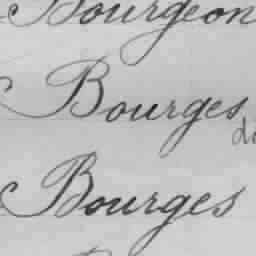 Bourgeon
Bourges
Bourges